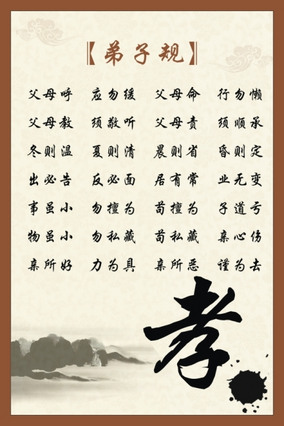 【弟子规】
父母呼 应勿缓 父母命 行勿懒
父母教 须敬听 父母责 须顺承
冬则温 夏则清 晨则省 昏则定
出必告 反必面 居有常 业无变
事虽小 勿擅为 苟擅为 子道亏
物虽小 勿私藏 苟私藏 亲心伤
亲所好 力为具 亲所恶 谨为去
孝